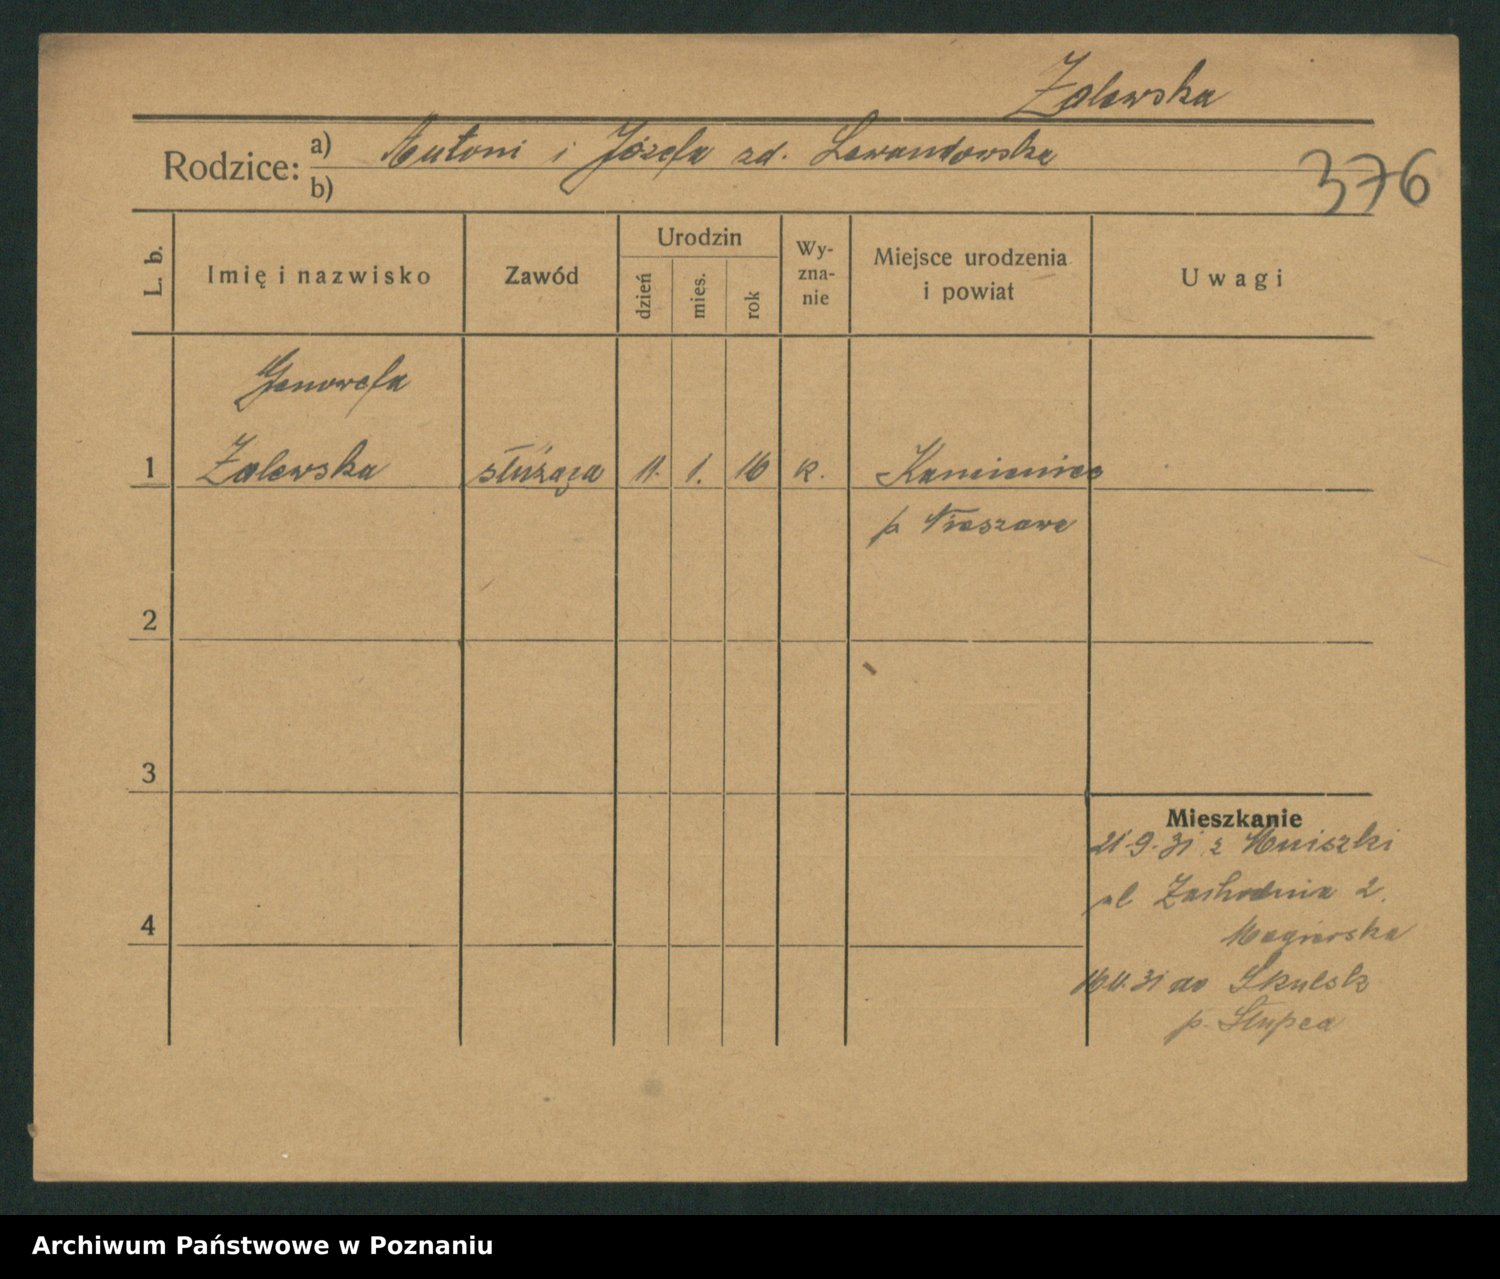 Zalewska
Rodzice: a) Antoni i Józefa zd. Lewandowska
b)
376
L. b.
Imię i nazwisko
Zawód
Urodzin
dzień
mies.
rok
Wy-
zna-
nie
Miejsce urodzenia
i powiat
Uwagi
Genowefa
1 Zalewska służąca 11. 1. 16 k. Kamieniec
p Nieszawa
2
3
4
Mieszkanie
21-9-31 z Mniszki
ul Zachodnia 2.
Magierska
16.11.31 do Skulsk
p. Słupca
Archiwum Państwowe w Poznaniu